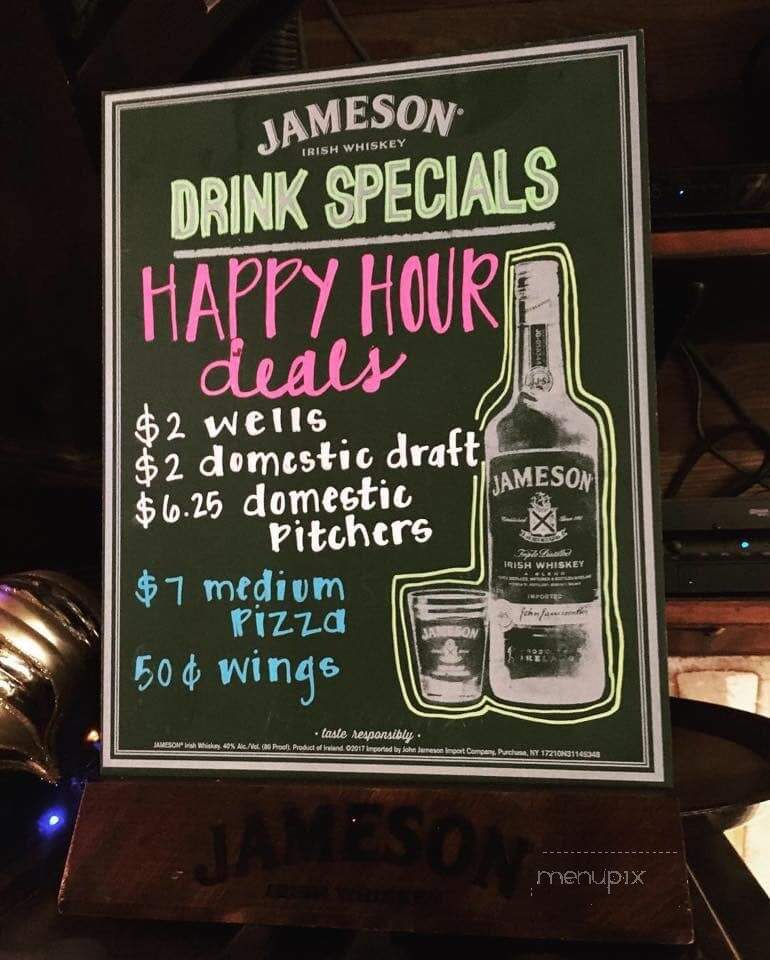 JAMESON
IRISH WHISKEY
DRINK SPECIALS
HAPPY HOUR
deals
$2 wells
$2 domestic draft
$6.25 domestic
pitchers
$7 medium
pizza
50¢ wings
JAMESON
Triple Distilled
IRISH WHISKEY
IMPORTED
JAMESON
• taste responsibly •
JAMESON® Irish Whiskey. 40% Alc./Vol. (80 Proof). Product of Ireland. ©2017 Imported by John Jameson Import Company, Purchase, NY 17210N31145348
JAMESON
menupix